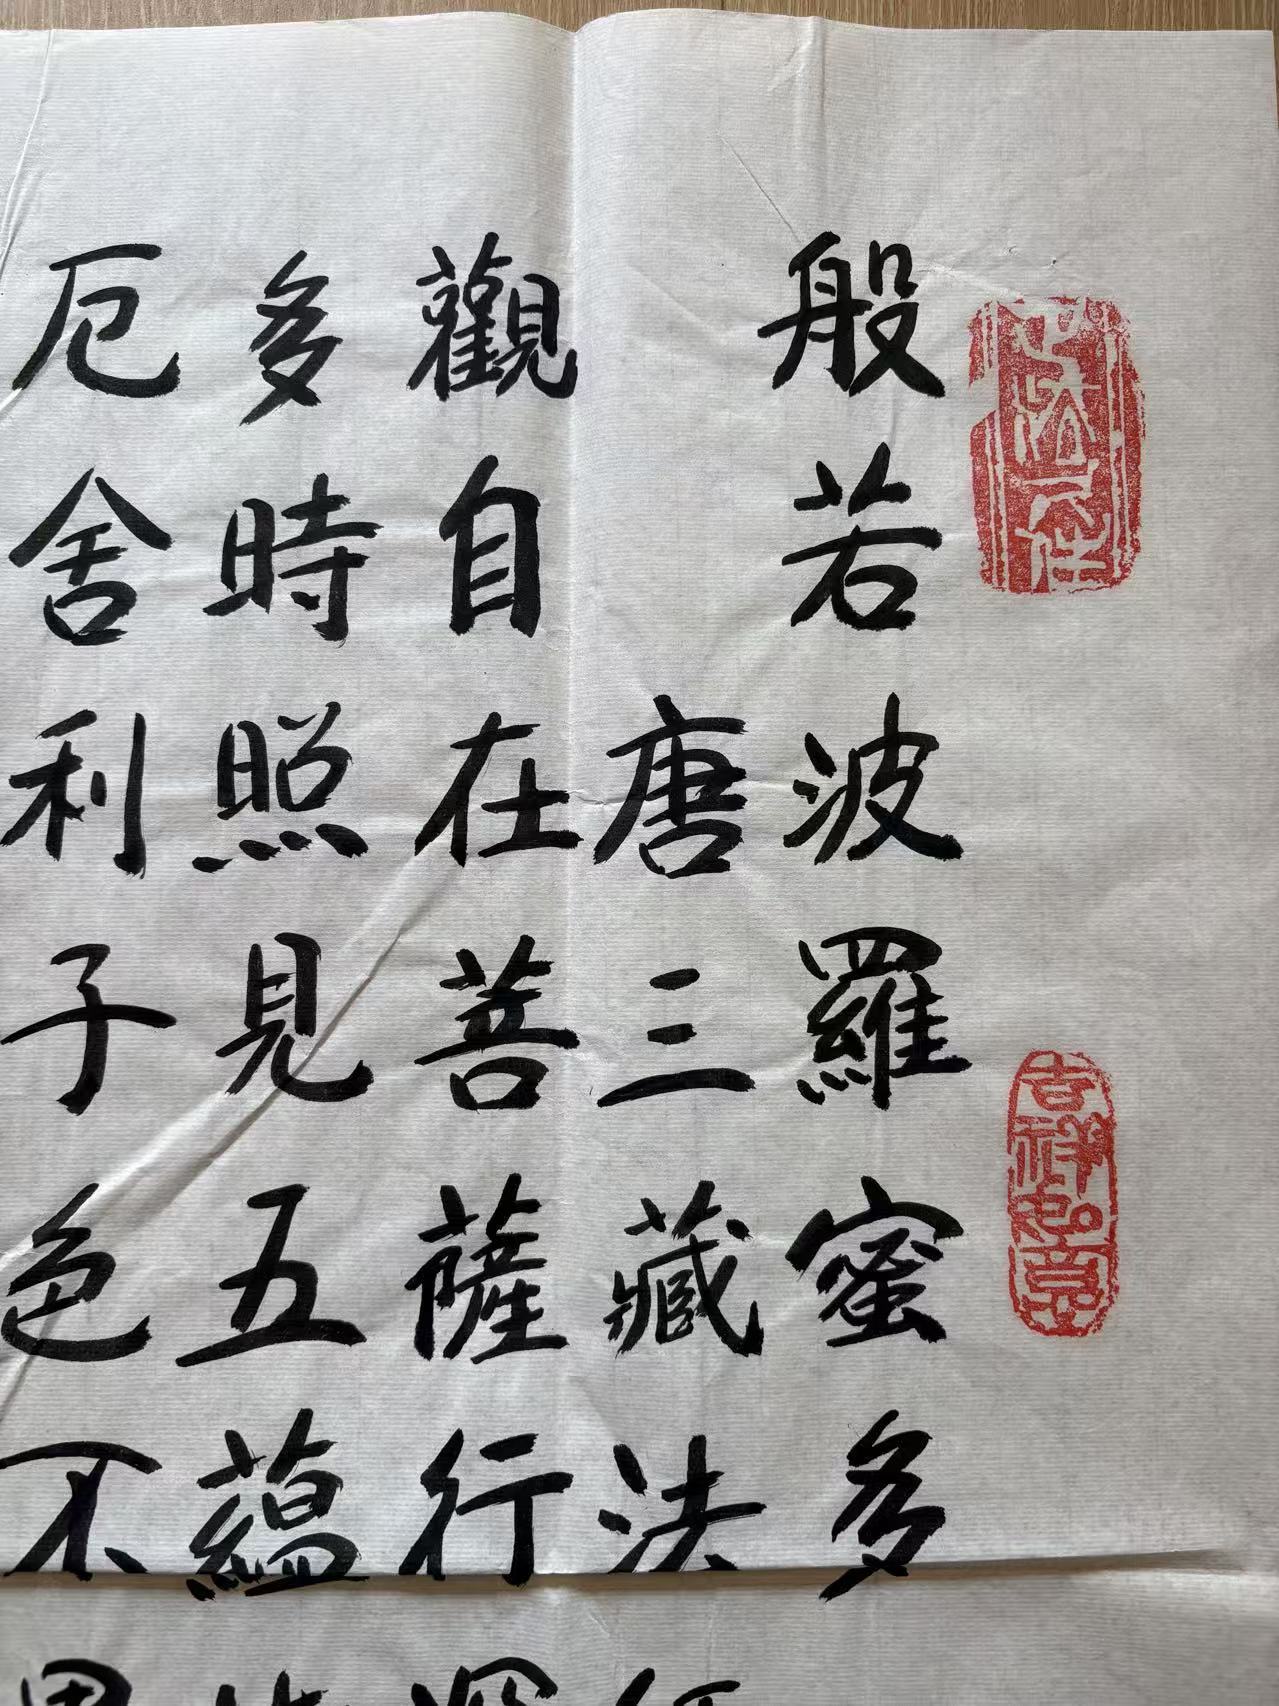 般若波羅蜜多
唐三藏法
觀自在菩薩行
多時照見五蘊
厄舍利子色不
吉祥如意